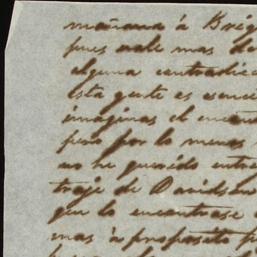 mañana à Brég
pues vale mas de
alguna contradic
Esta gente es senci
imaginas el encan
pero por lo menos
no he querido entre
traje de Davidson
que lo encontrase
mas à proposito p